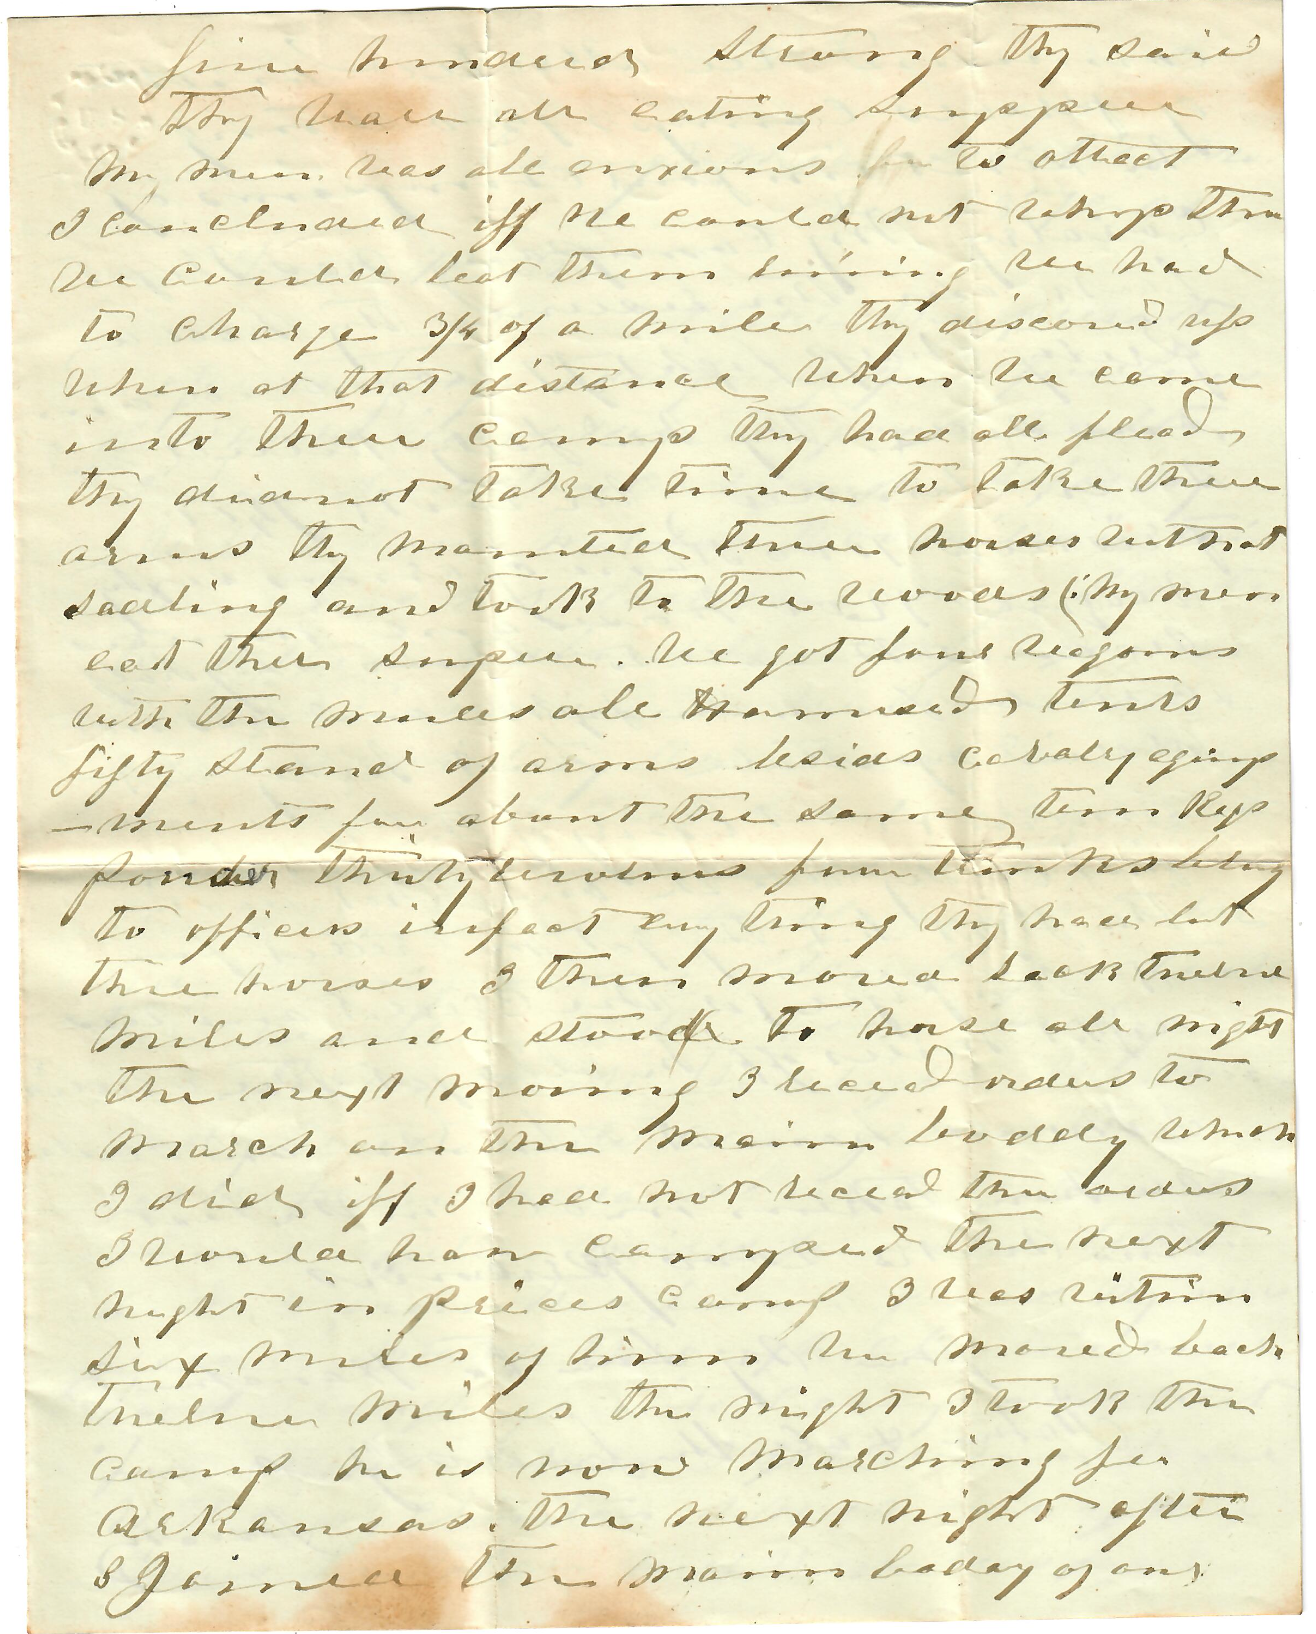 five hundred strong thy said
thy ware all eating suppper
my men was all anxious to attact
I concluded iff we could not whip them
we could beat them running we had
to charge 3/4 of a mile thy discoured us
when at that distance when we came
into there camp thy had all flead
thy did not take time to take there
arms thy mounted there horses without
sadling and took to the woods (my men
eat ther super. we got four wagons
with the mules all Harnused tents
fifty stand of arms besids cavalry equip
-ments for about the same ten kegs
powder thirty four trunks belong
to officers infact evry thing thy had but
there horses I then moved back twelve
miles and stood to horse all night
the next moring I received orders to
march on the main boddy which
I did iff I had not reced the orders
I would have camped the next
night in Prices camp I was within
six miles of him he moved back
twelve miles the night I took the
camp he is now marching for
Arkansas. the next night after
I Joined the main boday of our